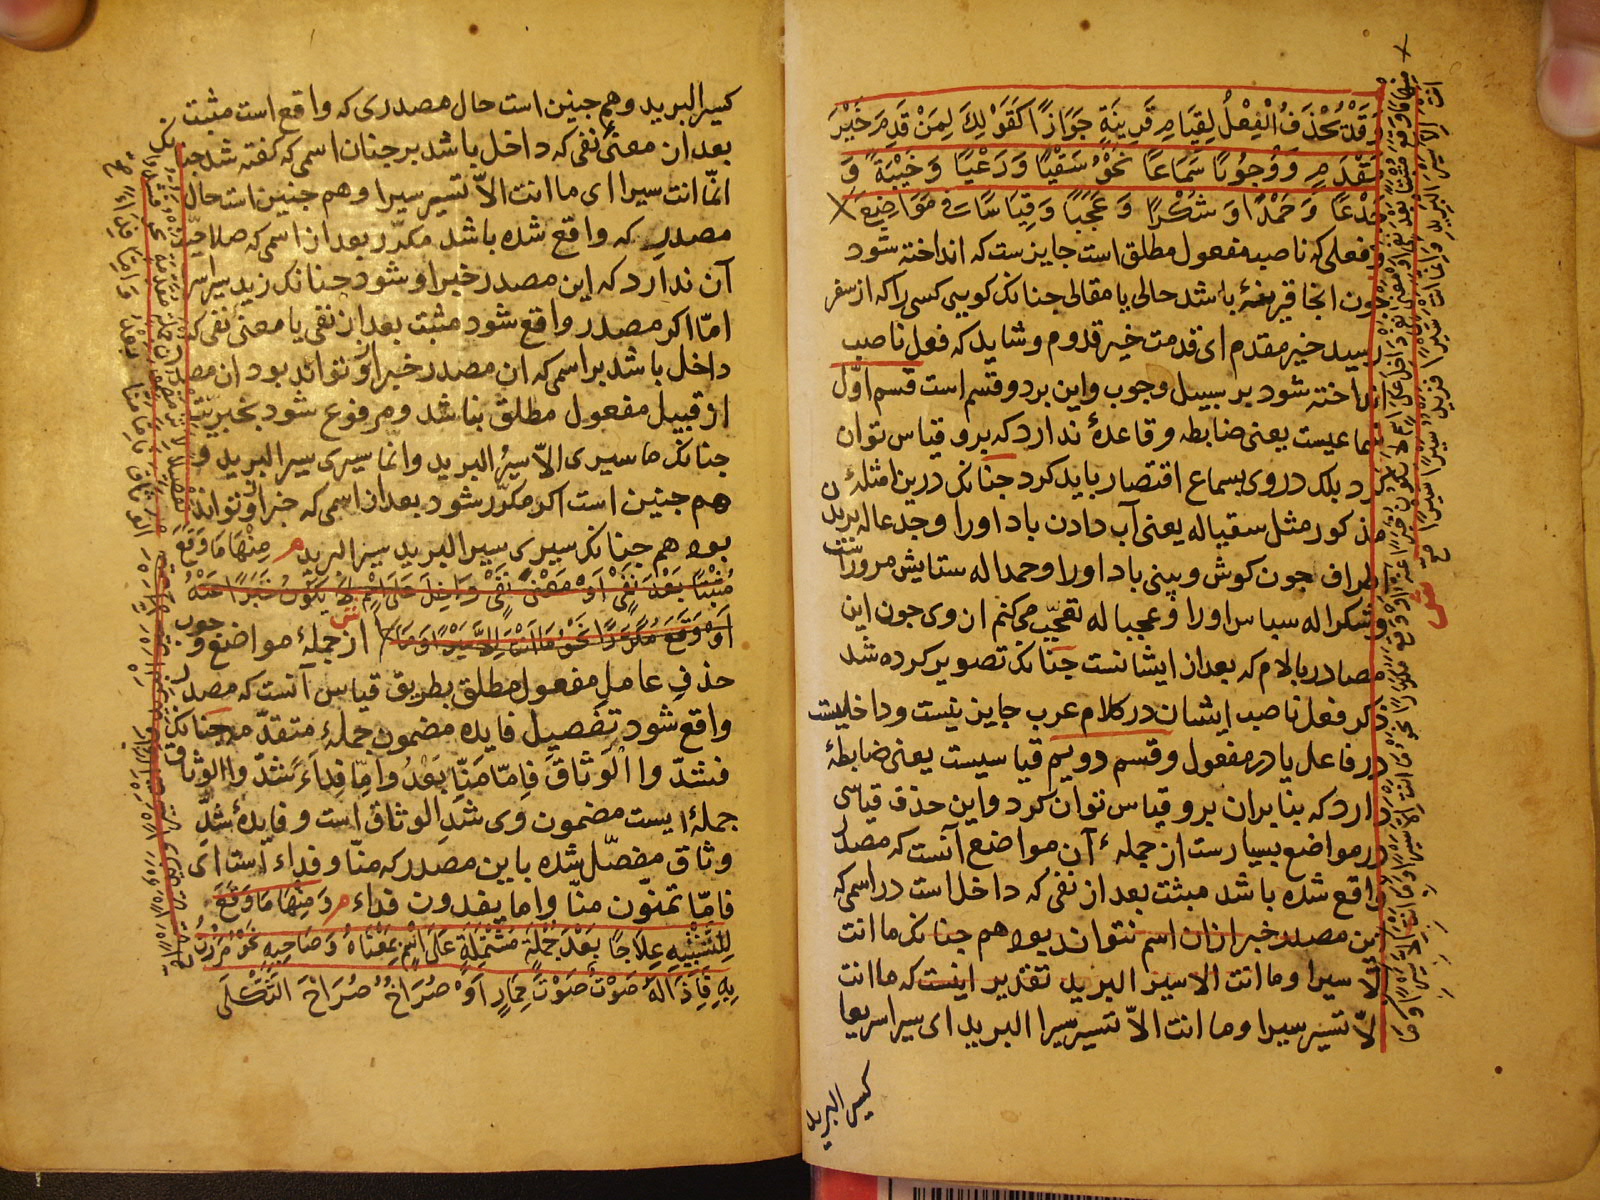 وَقَدْ يُحْذَفُ الْفِعْلُ لِقِيَامِ قَرِينَةٍ جَوَازًا كَقَوْلِكَ لِمَنْ قَدِمَ خَيْرَ
مَقْدَمٍ وَوُجُوبًا سَمَاعًا نَحْوُ سَقْيًا وَرَعْيًا وَخَيْبَةً وَ
جَدْعًا وَحَمْدًا وَشُكْرًا وَعَجَبًا وَقِيَاسًا فى مَوَاضِعَ
و فعلى كه ناصب مفعول مطلق است جايزست كه انداخته شود
جون انجا قرينهٔ باشد حالى يا مقالى جنانك كويى كسى را كه از سفر
رسيد خير مقدم اى قدمت خير قدوم وشايد كه فعل ناصب
انداخته شود بر سبيل وجوب واين بر دو قسم است قسم اوّل
سماعيست يعنى ضابطه وقاعدهٔ ندارد كه برو قياس توان
كرد بلك در وى بسماع اقتصار بايد كرد جنانك درين امثلهٔ
مذكور مثل سقيا له يعنى آب دادن باد او را وجدعا له بريدن
اطراف جون كوش وبينى باد او را وحمدا له ستايش مرورا
وشكرا له سباس او را وعجبا له تعجّب مىكنم ازوى جون اين
مصادر با لام كه بعد از ايشانست جنانك تصوير كرده شد
ذكر فعل ناصب ايشان در كلام عرب جايز نيست وداخليست
در فاعل يا در مفعول وقسم دويم قياسيست يعنى ضابطهٔ
دارد كه بنا بران برو قياس توان كرد واين حذف قياسى
در مواضع بسيارست از جملهٔ آن مواضع آنست كه مصدر
واقع شده باشد مثبت بعد از نفى كه داخل است در اسمى كه
اين مصدر خبر ازان اسم نتواند بود هم جنانك ما انت
الا سيرا وما انت الا سير البريد تقدير اينست كه ما انت
الّا تسير سيرا وما انت الاّ تسير سير البريد اى سيرا سريعا
كسير البريد
كسير البريد وهم جنين است حال مصدرى كه واقع است مثبت
بعد از معنىٔ نفى كه داخل باشد بر جنان اسمى كه كفته شد جنانك
انّما انت سيرا اى ما انت الاّ تسير سيرا وهم جنين است حال
مصدر كه واقع شده باشد مكرّر بعد از اسمى كه صلاحيّت
آن ندارد كه اين مصدر خبر او شود جنانك زيد سيرا سيرا
امّا اكر مصدر واقع شود مثبت بعد از نفى يا معنى نفى كه
داخل باشد بر اسمى كه ان مصدر خبر او تواند بود ان مصدر
از قبيل مفعول مطلق نباشد ومرفوع شود بخبريّت
جنانك ما سيرى الاّ سيرُ البريد وانما سيرى سير البريد و
هم جنين است اكر مكرّر شود بعد از اسمى كه خبر او تواند
بود هم جنانك سيرى سير البريد سير البريد م مِنْهَا مَا وَقَعَ
مُثْبَتًا بَعْدَ نَفْىٍ اَوْ مَعْنَى نَفْىٍ دَاخِلٍ عَلَى اِسْمٍ لَا يَكُونُ خَبَرًا عَنْهُ
اَوْ وَقَعَ مُكَرَّرًا نَحْوُ مَا اَنْتَ اِلَّا سَيْرًا وَمَا ش از جملهٔ مواضع وجوب
حذف عامل مفعول مطلق بطريق قياس آنست كه مصدر
واقع شود تفصيل فايده مضمون جملهٔ متقدّمه جنانك
فشدّوا الْوَثاق فَاِمّا مَنّا بَعْدُ واِمّا فِداءً فشدّوا الوثاق
جملهٔ ايست مضمون وى شدّ الوثاق است وفايدهٔ شدّ
وثاق مفصّل شده باين مصدر كه منّا وفداء است اى
فامّا تمنّون منّا واما يفدون فداء م وَمِنْهَا مَا وَقَعَ
لِلتَّشْبِيهِ عِلَاجًا بَعْدَ جُمْلَةٍ مُشْتَمِلَةٍ عَلَى اسْمٍ بِمَعْنَاهُ وَصَاحِبِهِ نَحْوُ مَرَرْتُ
بِهِ فَاِذَا لَهُ صَوْتٌ صَوْتَ حِمَارٍ اَوْ صُرَاخٌ صُرَاخَ الثَّكْلَى